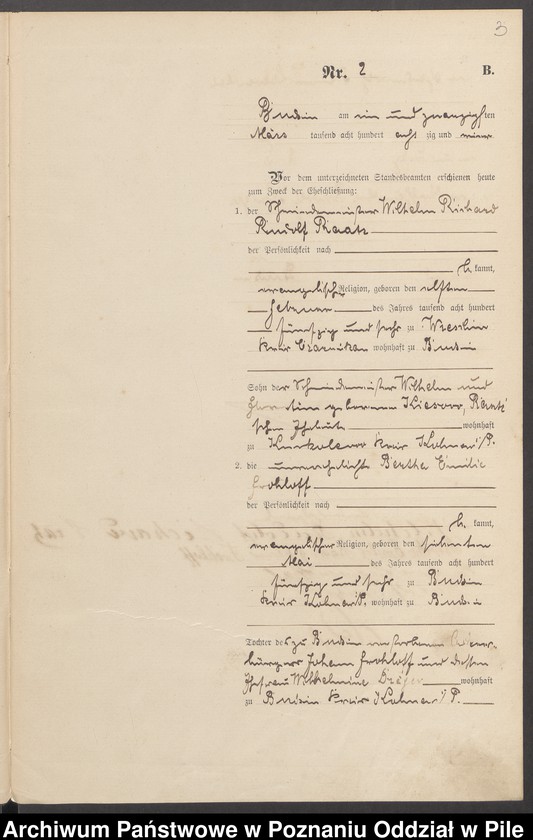 3
Nr. 2 B.
Budsin am ein und zwanzigsten
März tausend acht hundert achtzig und
Vor dem unterzeichneten Standesbeamten erschienen heute
zum Zweck der Eheschließung:
1. der Schmiedemeister Wilhelm Richard
Rudolf Raatz
der Persönlichkeit nach
be kannt,
evangelischer Religion, geboren den elften
Februar des Jahres tausend acht hundert
fünfzig und sechs zu
Kreis Czarnikau wohnhaft zu Budsin
Sohn der Schmiedemeister Wilhelm und
geborene Raatz'
schen Eheleute wohnhaft
zu Kreis Kolmar i/P.
2. die unverehelichte Bertha Emilie
Frohloff
der Persönlichkeit nach
be kannt,
evangelischer Religion, geboren den siebenten
Mai des Jahres tausend acht hundert
fünfzig und sechs zu Budsin
Kreis Kolmar i/P. wohnhaft zu Budsin
Tochter des zu Budsin verstorbenen Acker-
bürgers Johann Frohloff und dessen
Ehefrau Wilhelmine wohnhaft
zu Budsin Kreis Kolmar i/P.
Archiwum Państwowe w Poznaniu Oddział w Pile